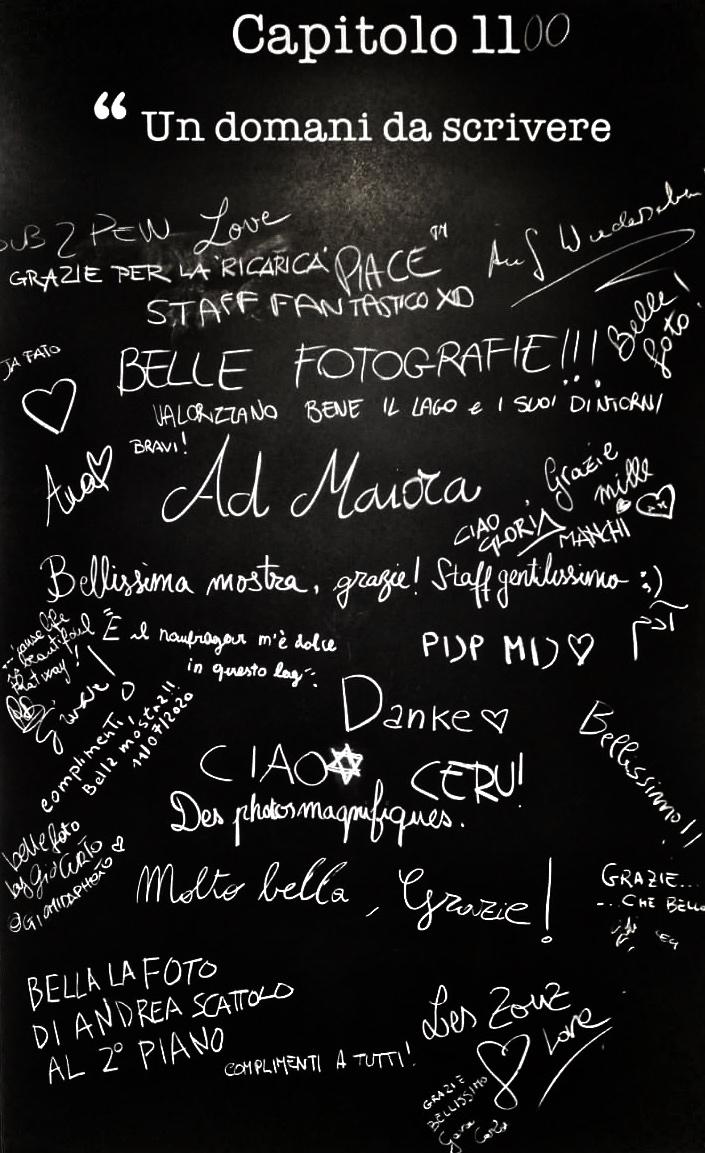 Capitolo 1100
“ Un domani da scrivere
Love
GRAZIE PER LA "RICARICA" PIACE ™
Auf Wiedersehen
STAFF FANTASTICO XD
Belle
foto!
JA FATO
BELLE FOTOGRAFIE!!!
VALORIZZANO BENE IL LAGO e I SUOI DINTORNI
BRAVI!
Ana
Ad Maiora
Grazie
mille
CIAO
GLORIA
MANCHI
Bellissima mostra, grazie! Staff gentilissimo :)
life
is beautiful
that way!
"E il naufragar m'è dolce
in questo lag"
PIJP MIJ
Danke
complimenti,
Bella mostra!!!
11/07/2020
Bellissimo!!
CIAO
CERU!
Des photos magnifiques.
belle foto
by giò
Molto bella, Grazie!
GRAZIE...
...CHE BELLO
BELLA LA FOTO
DI ANDREA SCATTOLO
AL 2° PIANO
COMPLIMENTI A TUTTI!
Les Zouz
Love
GRAZIE
BELLISSIMO